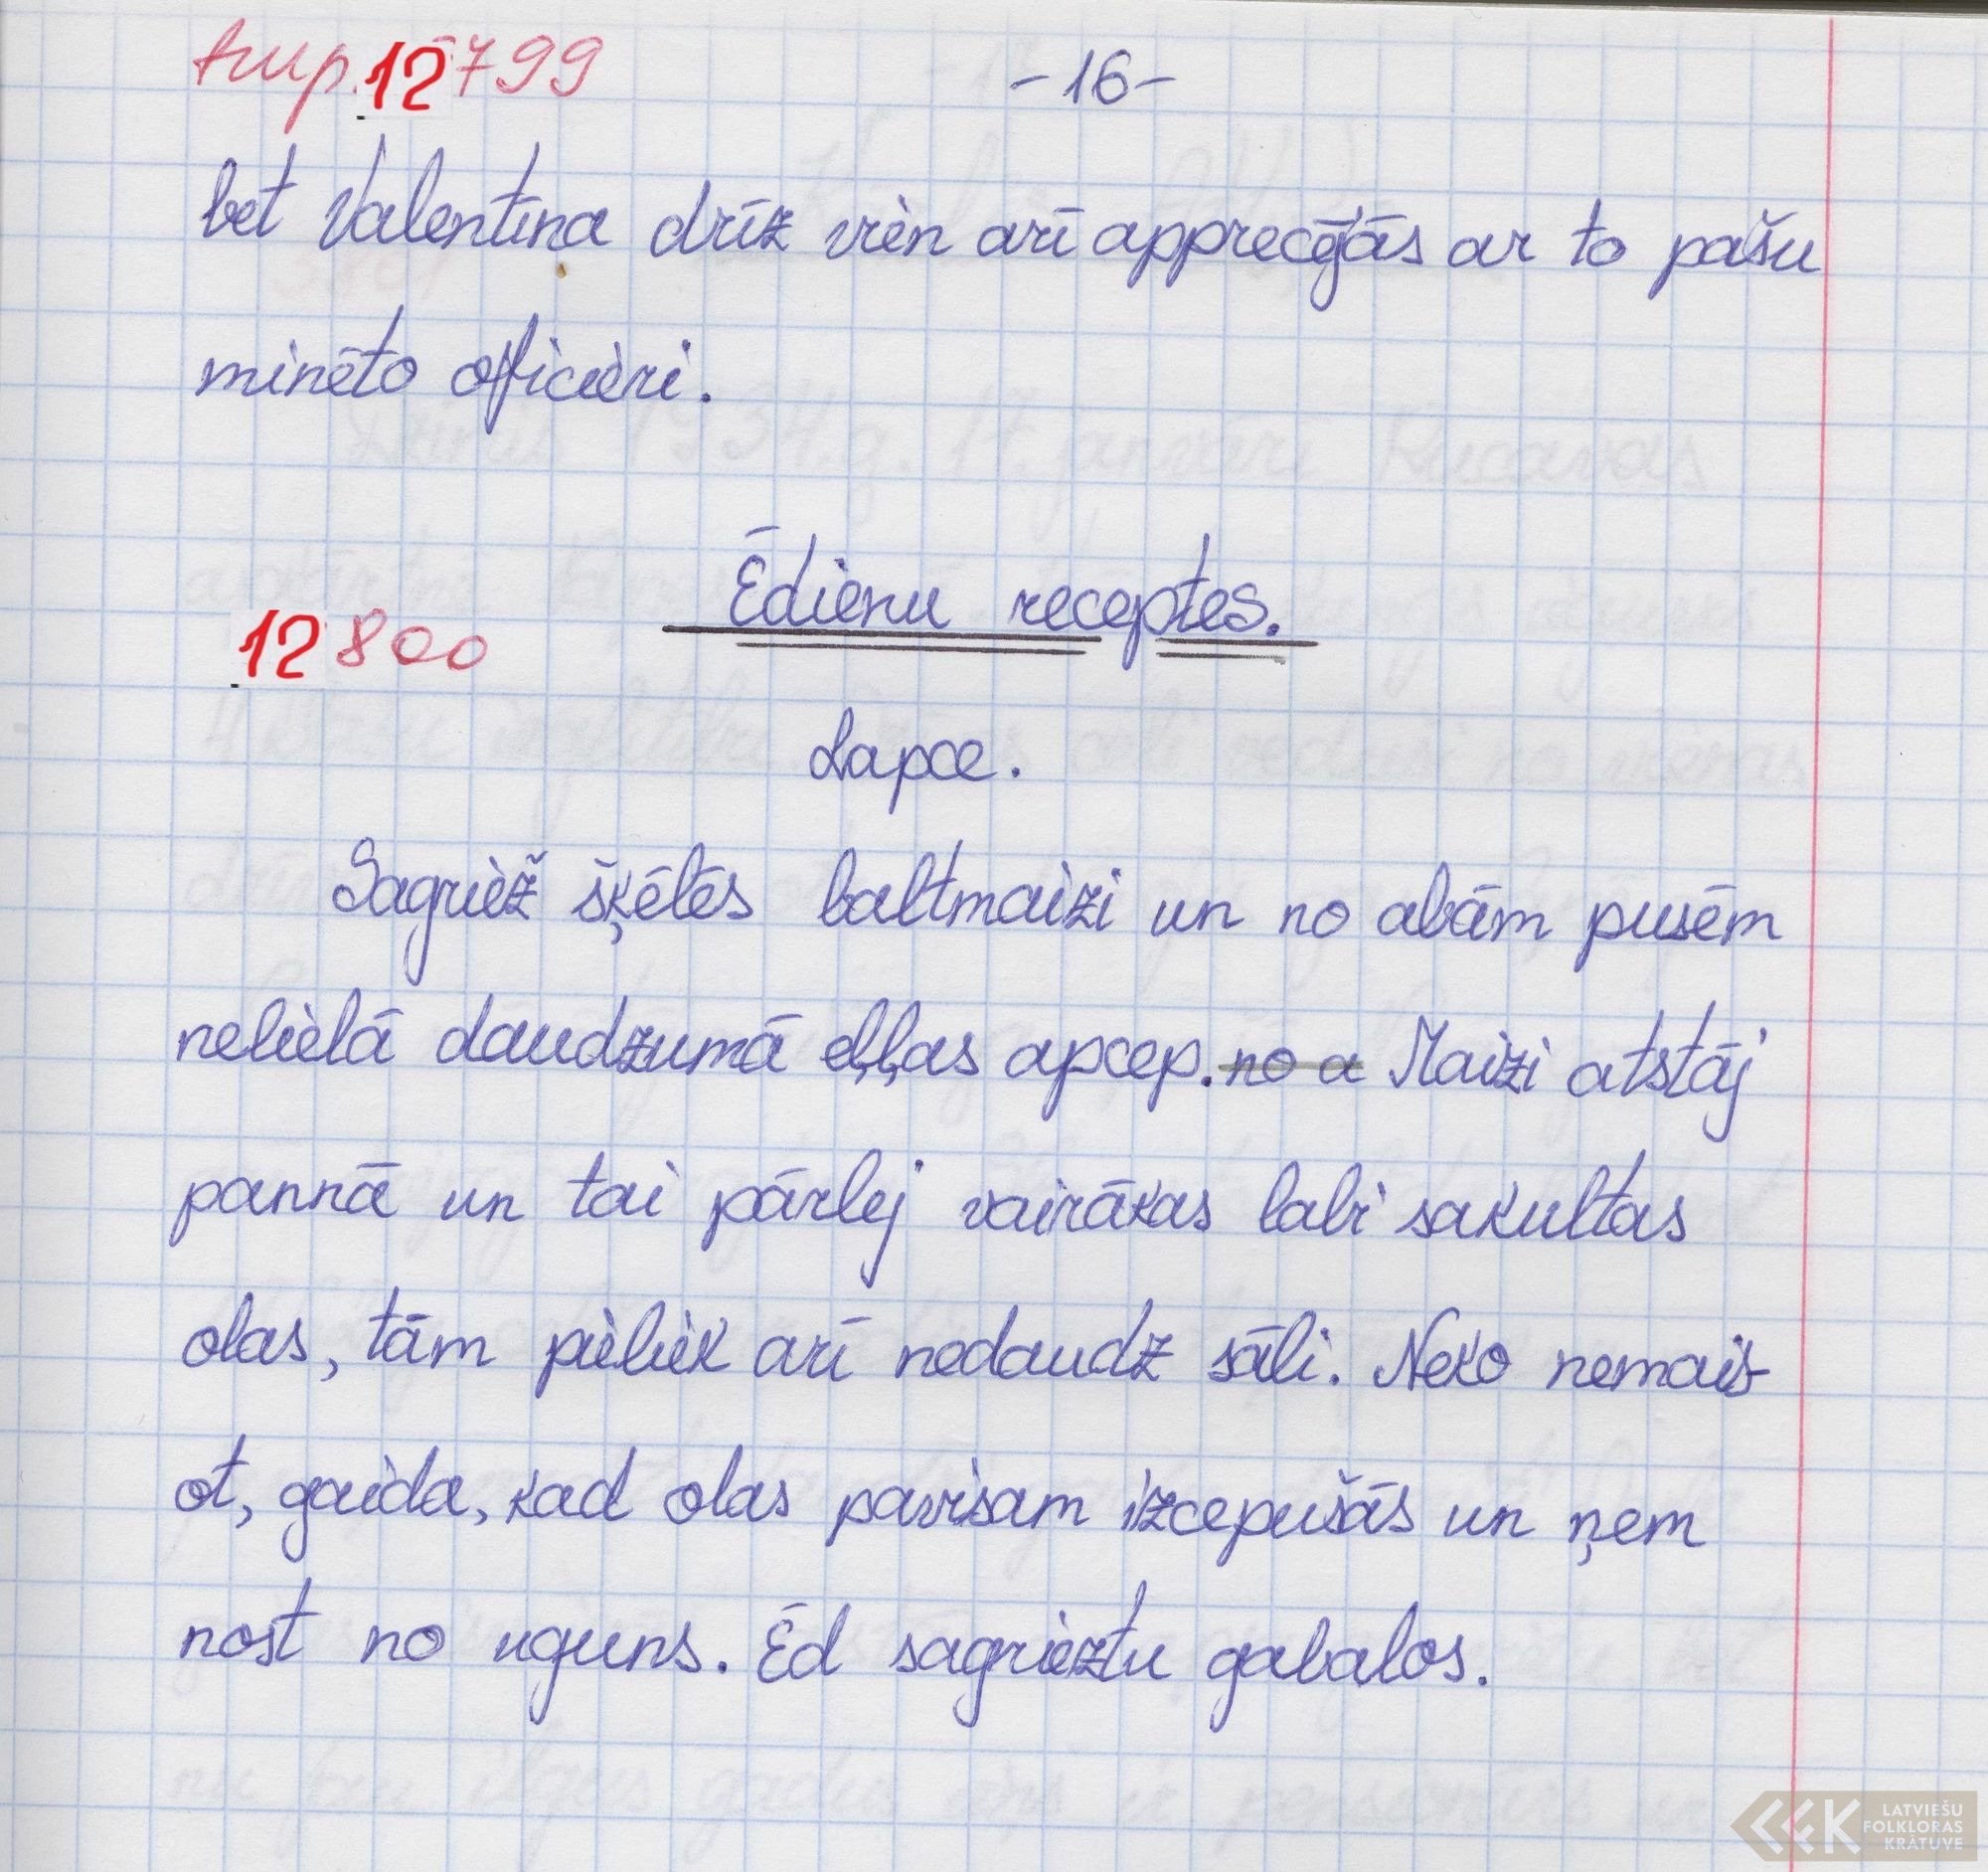 turp. 12799
-16-
bet Valentīna drīz vien arī apprecējās ar to pašu
minēto oficieri.
Ēdienu receptes.
12800
Lapce.
Sagriež šķēlēs baltmaizi un no abām pusēm
nelielā daudzumā eļļas apcep. no a Maizi atstāj
pannā un tai pārlej vairākas labi sakultas
olas, tām pieliek arī nedaudz sāli. Neko nemais-
ot, gaida, kad olas pavisam izcepušās un ņem
nost no uguns. Ēd sagrieztu gabalos.
LATVIEŠU
FOLKLORAS
KRĀTUVE